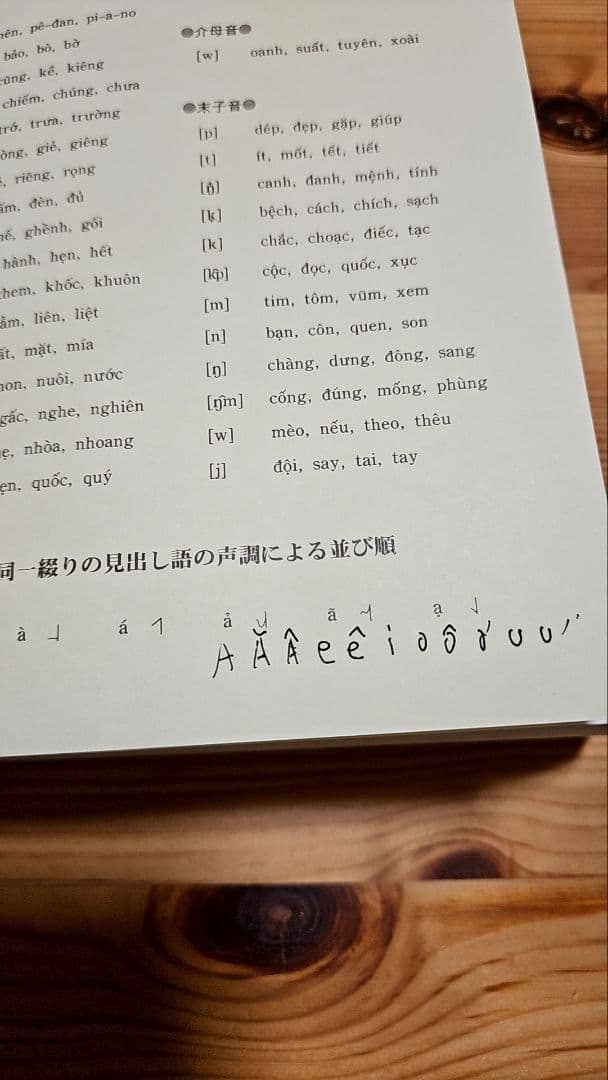 pê-đan, pi-a-no
bảo, bò, bờ
kể, kiêng
chiếm, chúng, chưa
trở, trưa, trường
giẻ, giêng
riêng, rọng
đèn, đủ
ghềnh, gồi
hành, hẹn, hết
khốc, khuôn
liên, liệt
mặt, mía
nuôi, nước
gấc, nghe, nghiên
nhòa, nhoang
quốc, quý
●介母音●
[w] oanh, suất, tuyên, xoài
●末子音●
[p] dép, đẹp, gặp, giúp
[t] ít, mốt, tết, tiết
canh, đanh, mệnh, tính
bệch, cách, chích, sạch
[k] chắc, choạc, điếc, tạc
[k͡p] cộc, đọc, quốc, xục
[m] tim, tôm, vũm, xem
[n] bạn, côn, quen, son
[ŋ] chàng, dưng, đông, sang
[ŋ͡m] cống, đúng, mống, phùng
[w] mèo, nếu, theo, thêu
[j] đội, say, tai, tay
同一綴りの見出し語の声調による並び順
à ˩ á ả ã ạ
A Ă Â e ê i o ô ơ u ư